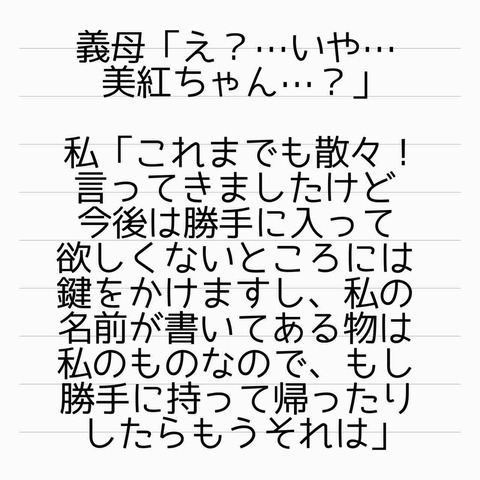 義母「え？…いや…
美紅ちゃん…？」
私「これまでも散々！
言ってきましたけど
今後は勝手に入って
欲しくないところには
鍵をかけますし、私の
名前が書いてある物は
私のものなので、もし
勝手に持って帰ったり
したらもうそれは」